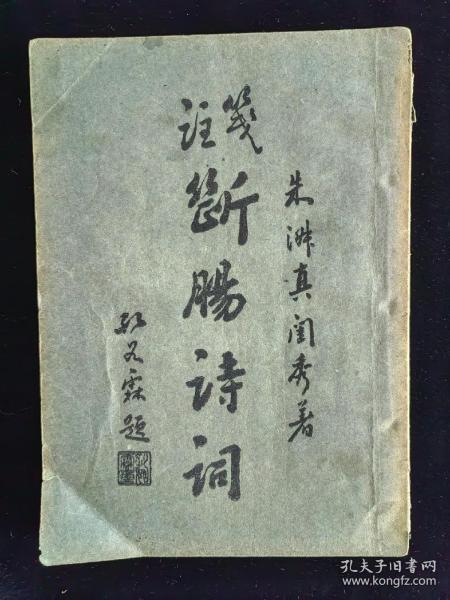 朱淑真閨秀著
箋註
斷腸詩詞
霖題
孔夫子旧书网
www.kongfz.com